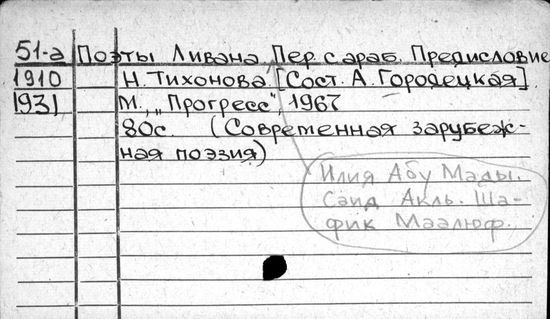 51-а Поэты Ливана. Пер. с араб. Предисловие
1910 Н. Тихонова. [Сост. А. Городецкая].
1931 М., „Прогресс", 1967
80с. (Современная зарубеж-
ная поэзия)
Илия Абу Мады.
Саид Акль. Ша-
фик Маалюф.